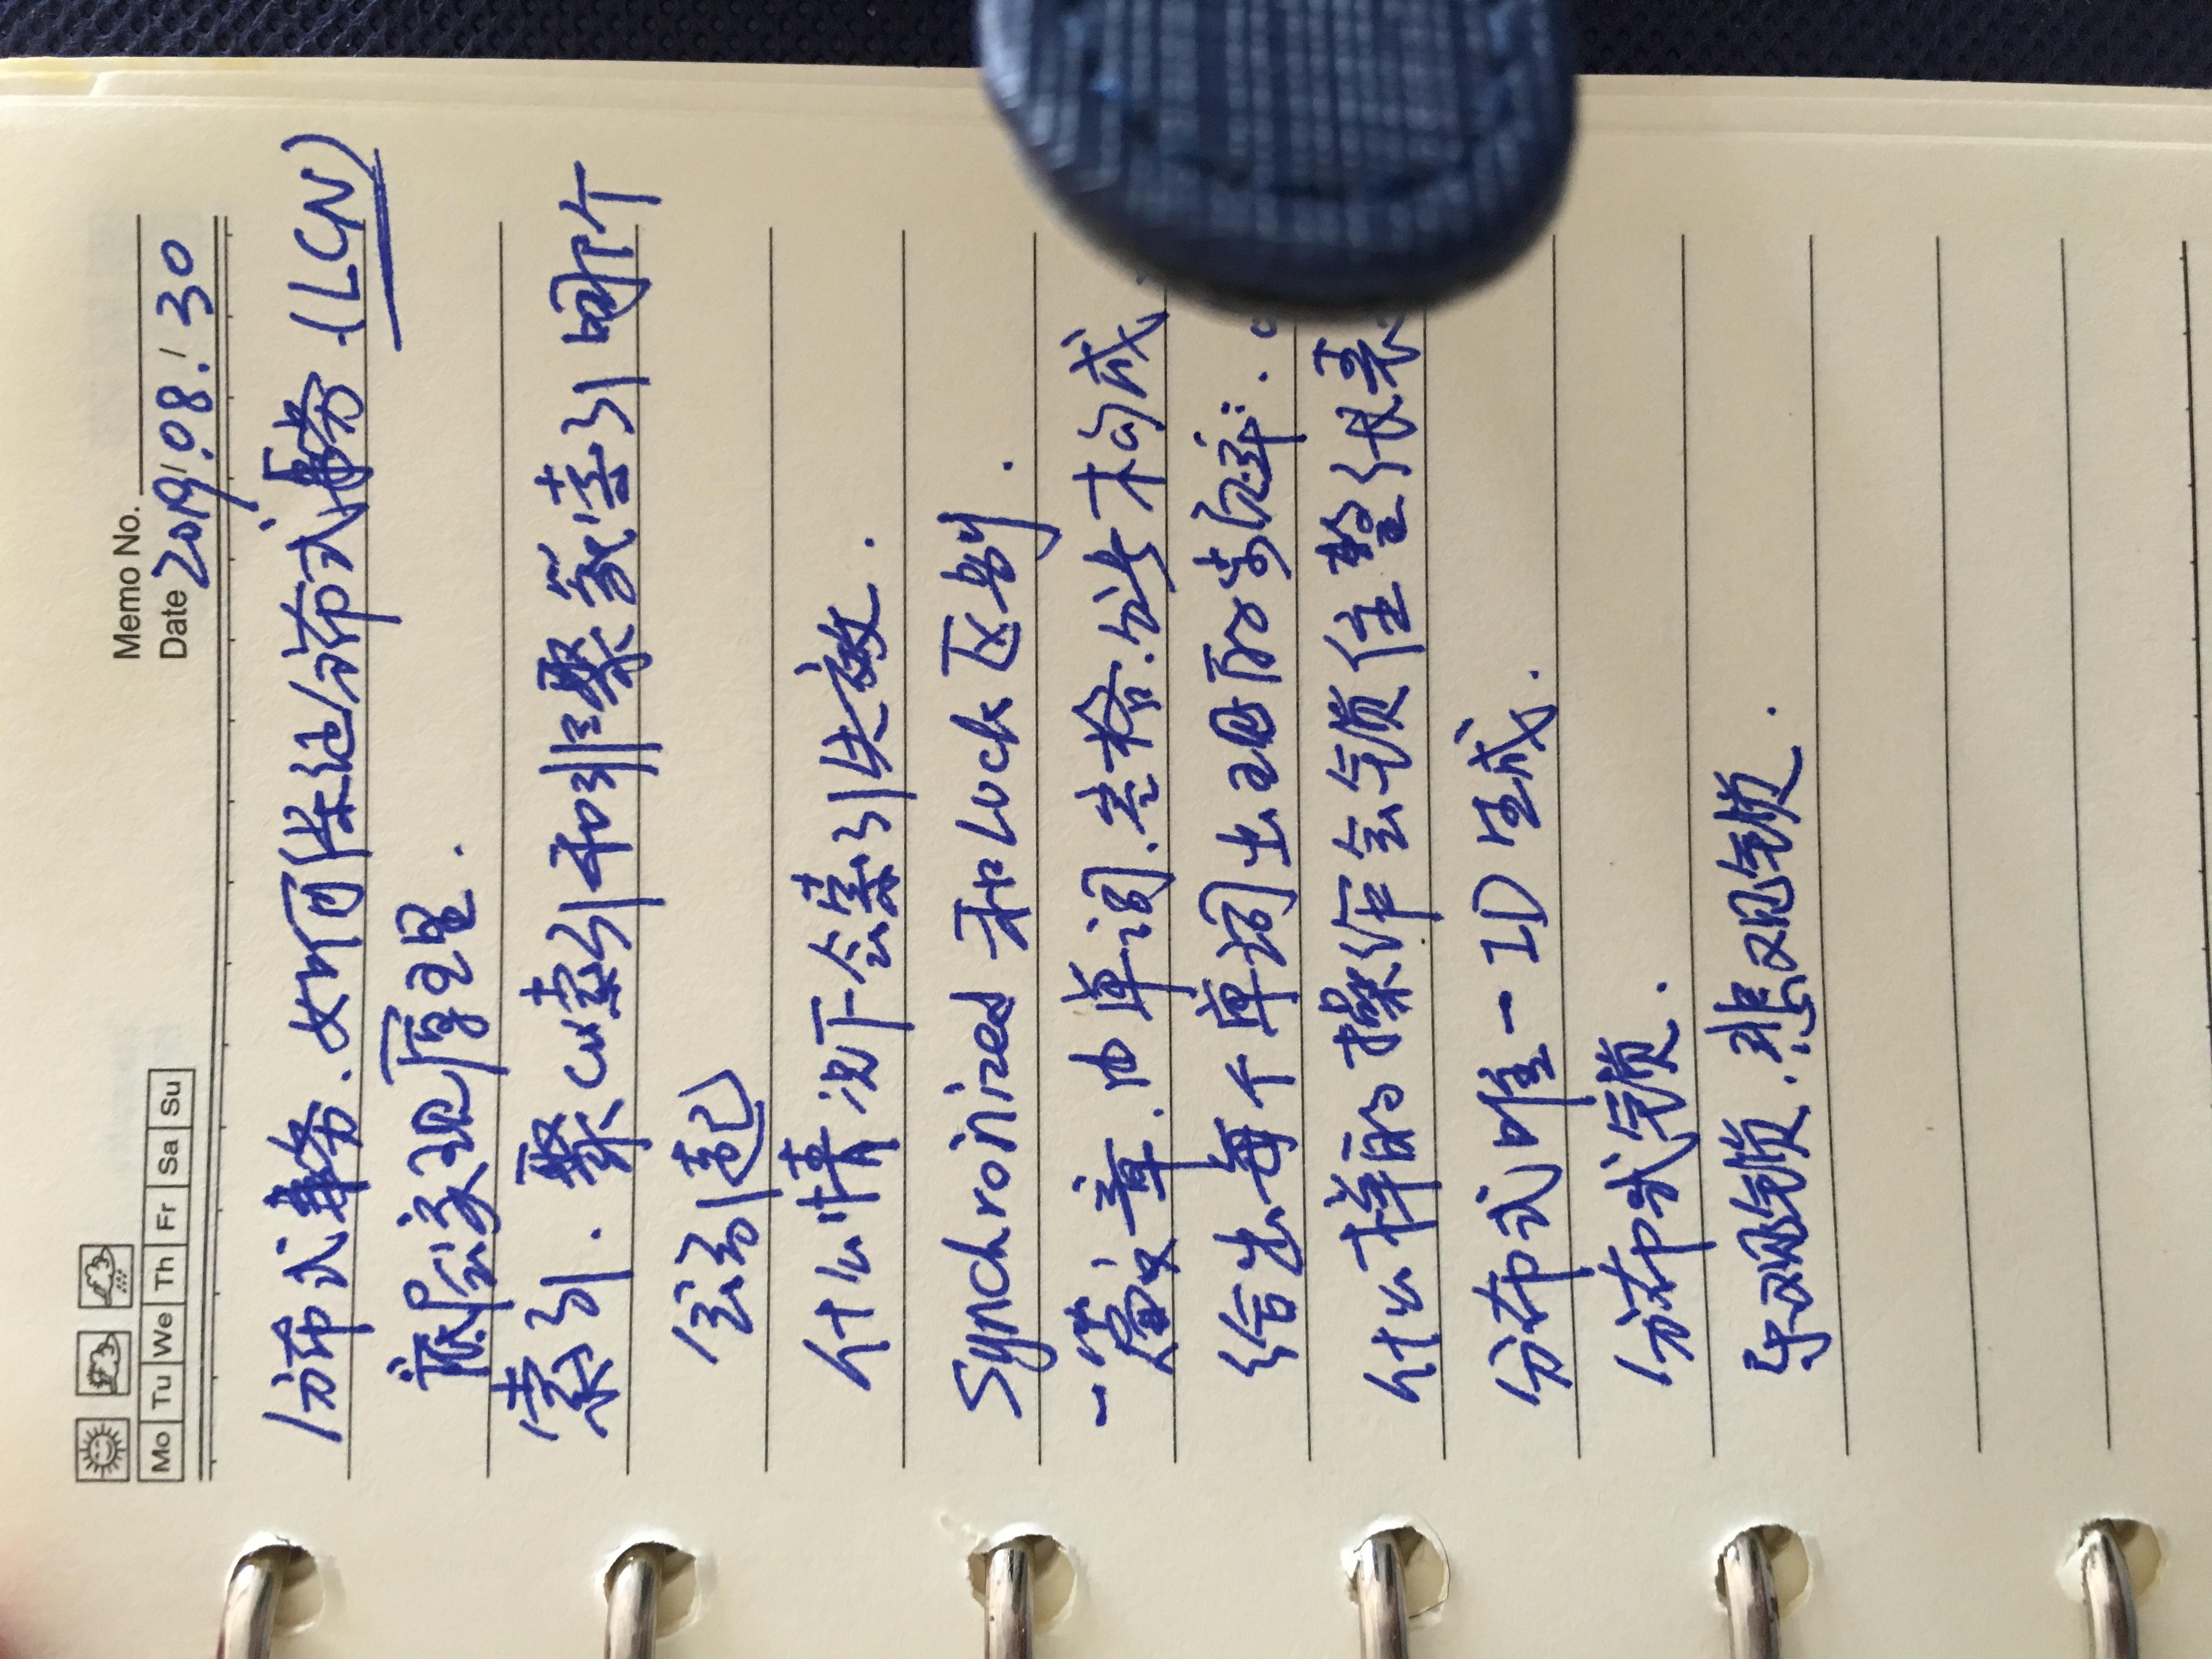 Mo Tu We Th Fr Sa Su
Memo No.
Date 2019/.08./30
分布式事务.如何保证分布式事务.(LCN)
底层实现原理.
索引.聚cu索引和非聚簇索引哪个
会引起
什么情况下会索引失效.
Synchronized 和Lock区别.
一篇文章.由单词.空格.分号构成.
给出每个单词出现的频率.
什么样的操作会锁住整张表
分布式唯一ID生成.
分布式锁.
乐观锁.悲观锁.